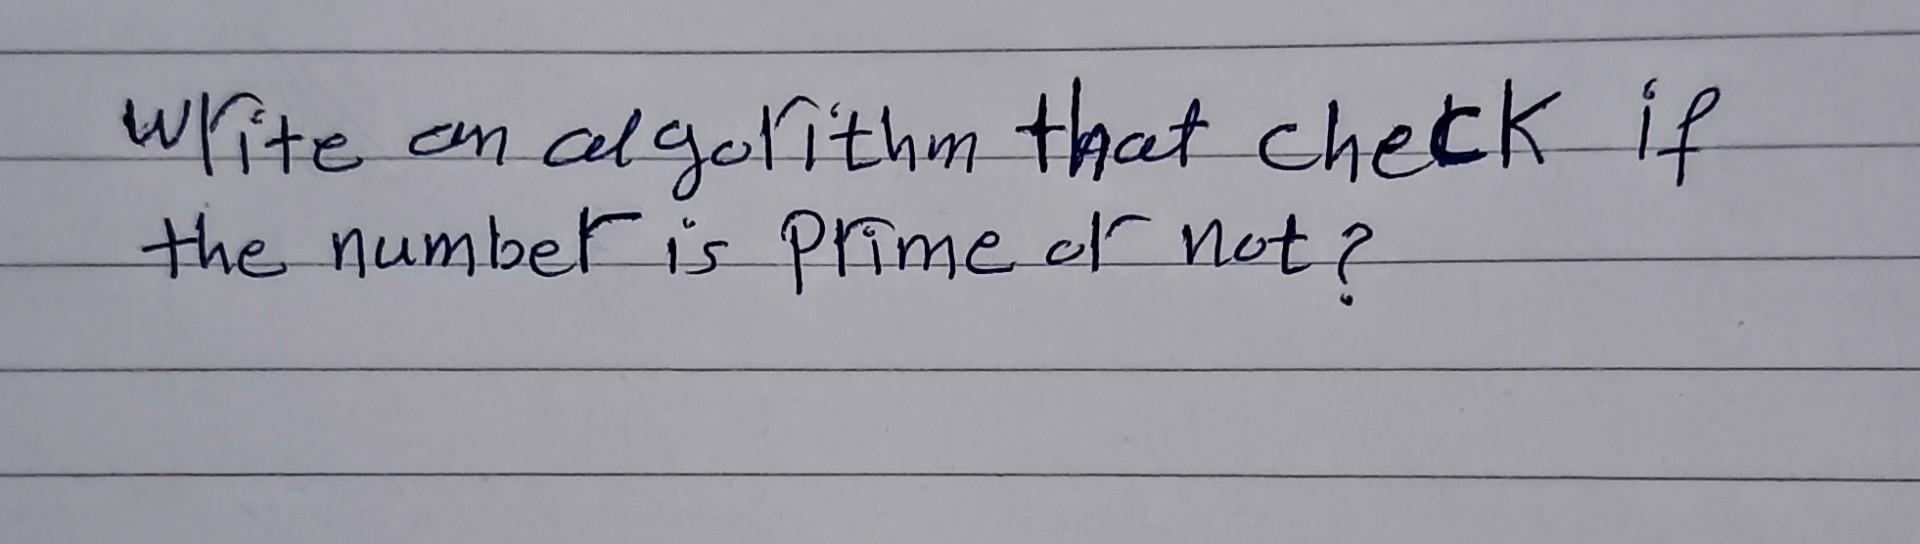 Write an algorithm that check if
the number is prime or not?